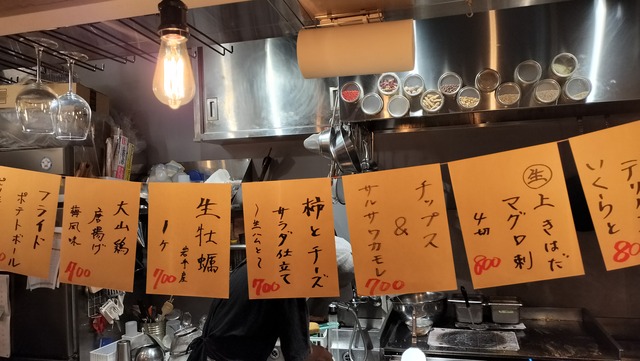 フライド
ポテトボール
大山鶏
唐揚げ
梅風味
700
生牡蠣
岩手産
1ケ
700
柿とチーズ
サラダ仕立て
〜生ハムと〜
700
チップス
&
サルサワカモレ
700
生
上きはだ
マグロ刺
4切
800
いくらと
80